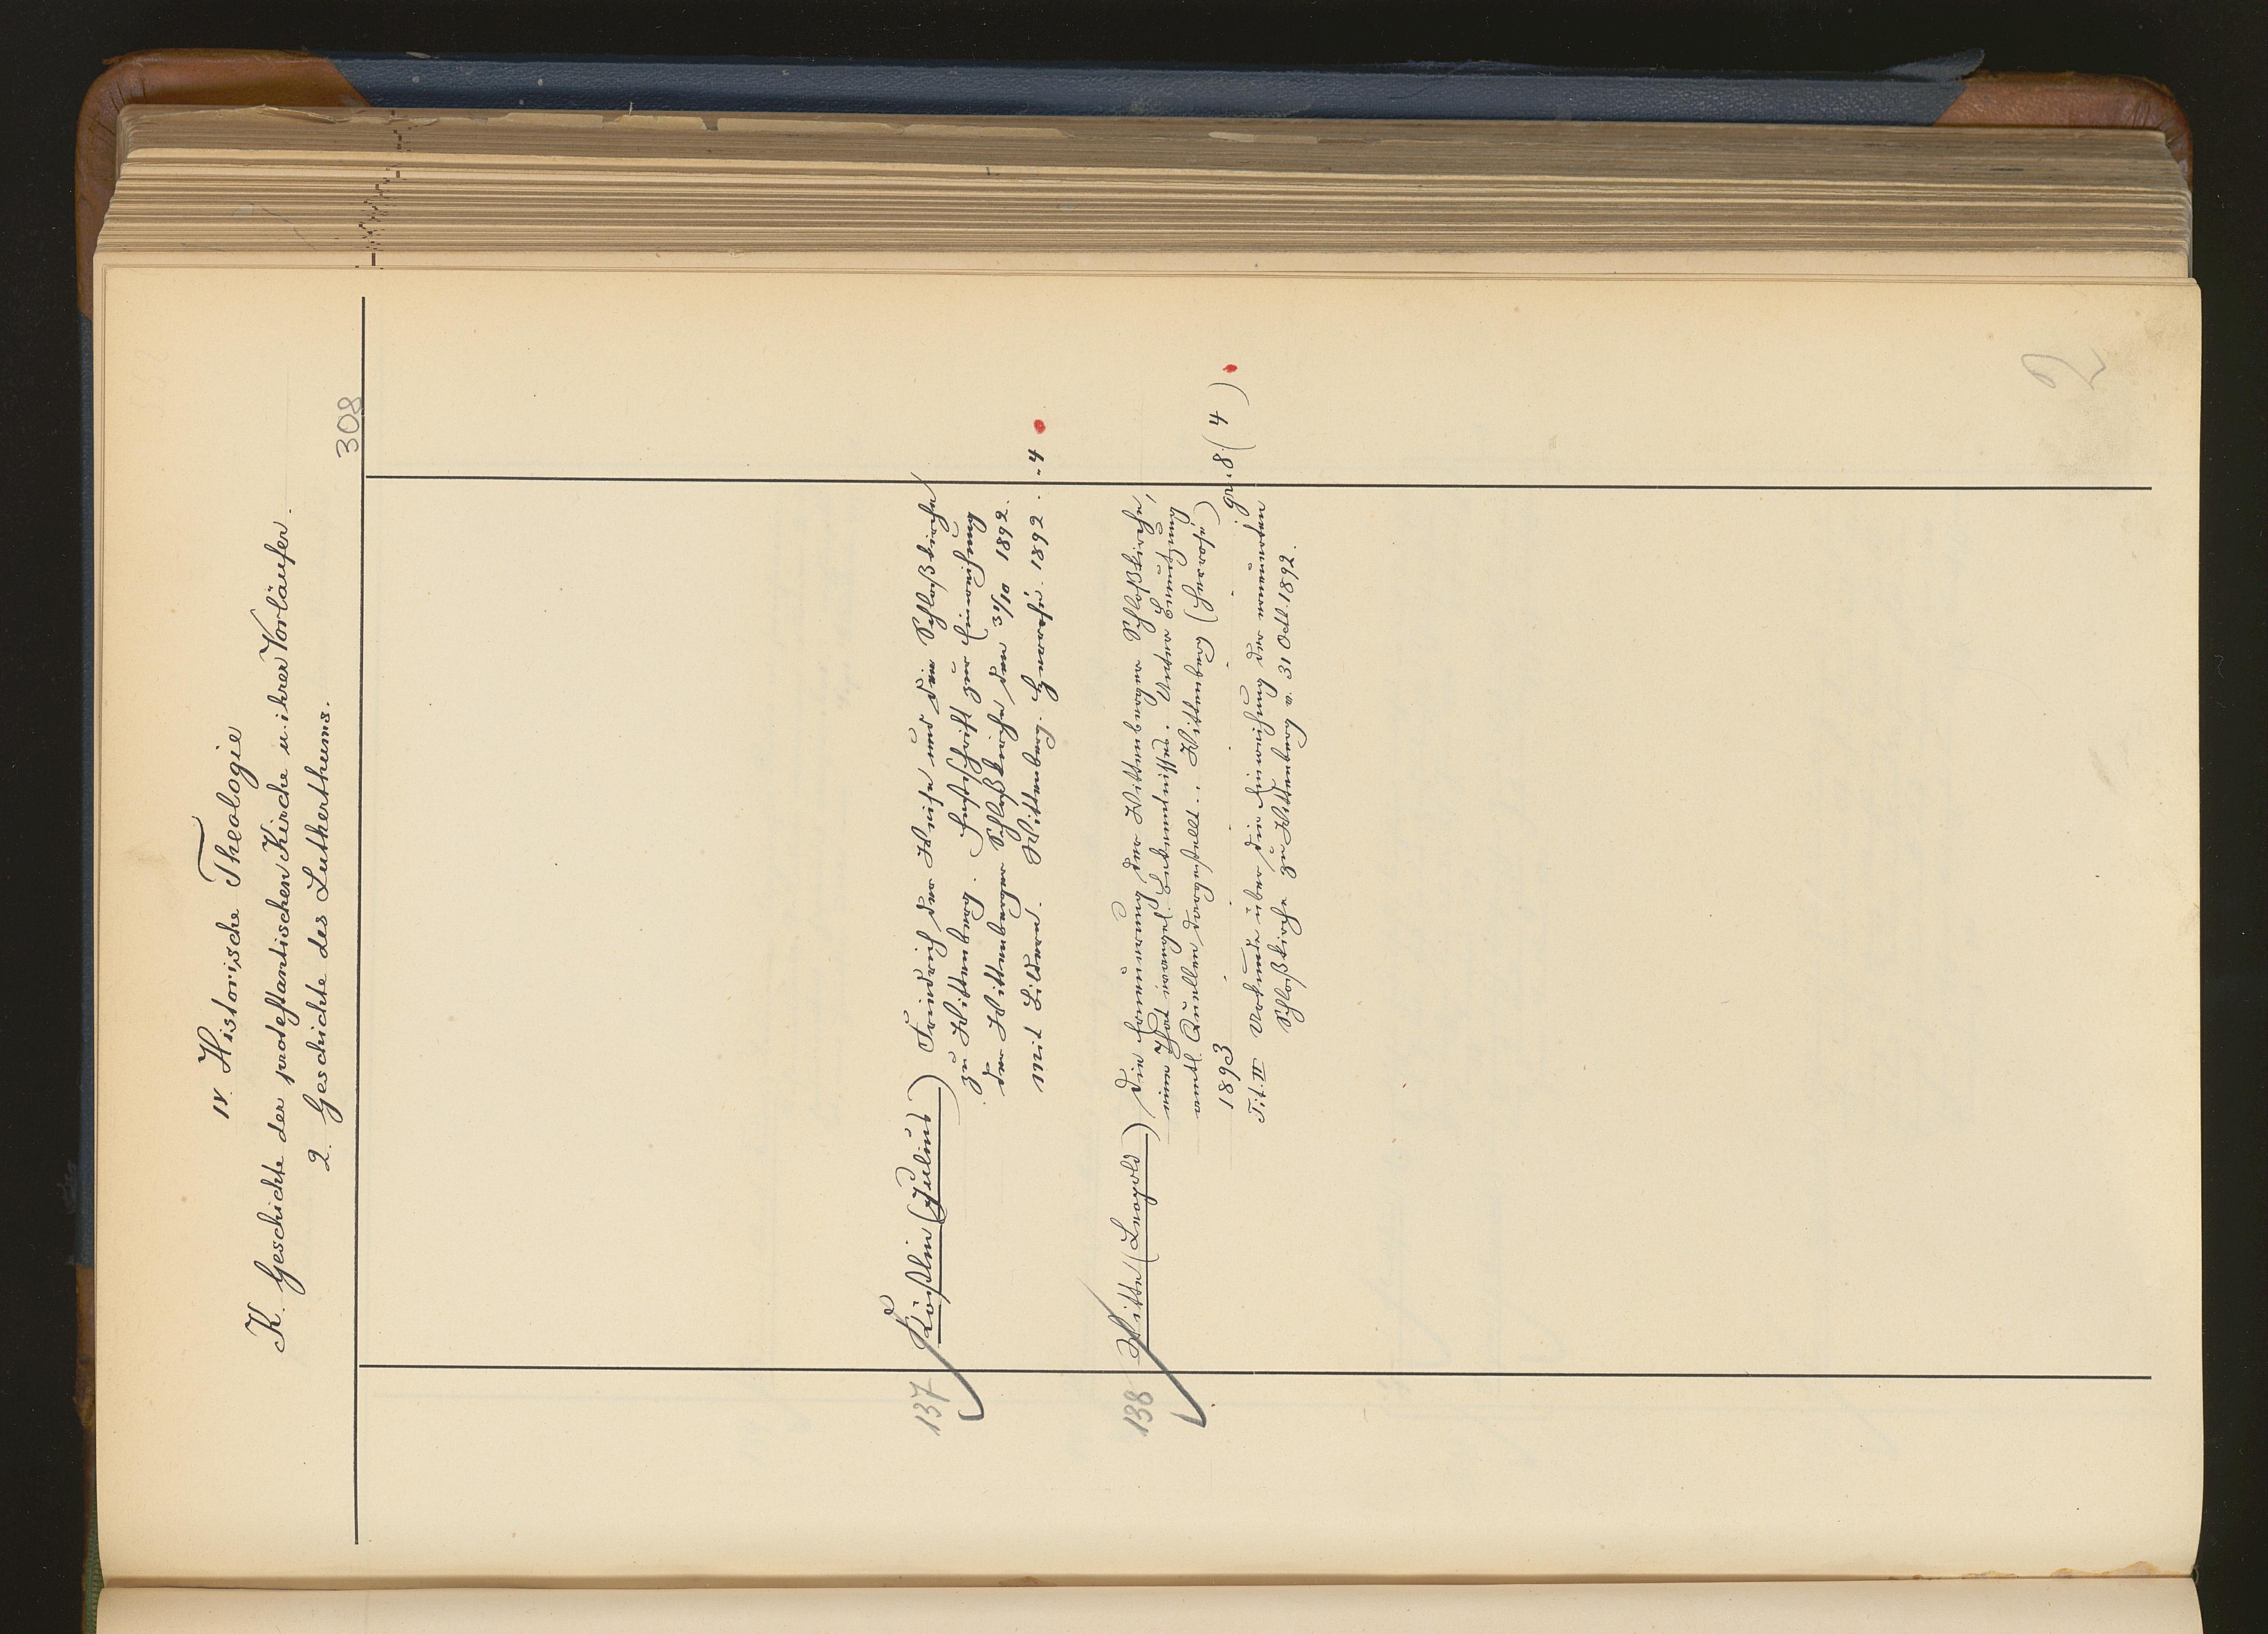 IV. Historische Theologie
K. Geschichte der protestantischen Kirche u. ihrer Vorläufer.
2. Geschichte des Lutherthums.
308
137 Köstlin (Julius) Friedrich der Weise und die Schloßkirche
zu Wittenberg. Festschrift zur Einweihung
der Wittenberger Schloßkirche den 31/10 1892.
Mit Bildern. Wittenberg. Herrosé. 1892. . 4
138 Witte (Leopold) Die Erneuerung der Wittenberger Schloßkirche,
eine That evangel. Bekenntnisses. Unter Benutzung
amtl. Quellen dargestellt.. Wittenberg (Herrosé)
1893 . . . . . . . gr. 8 (4)
Tit. II Urkunde über die Einweihung der erneuerten
Schloßkirche zu Wittenberg v. 31 Oct. 1892.
2